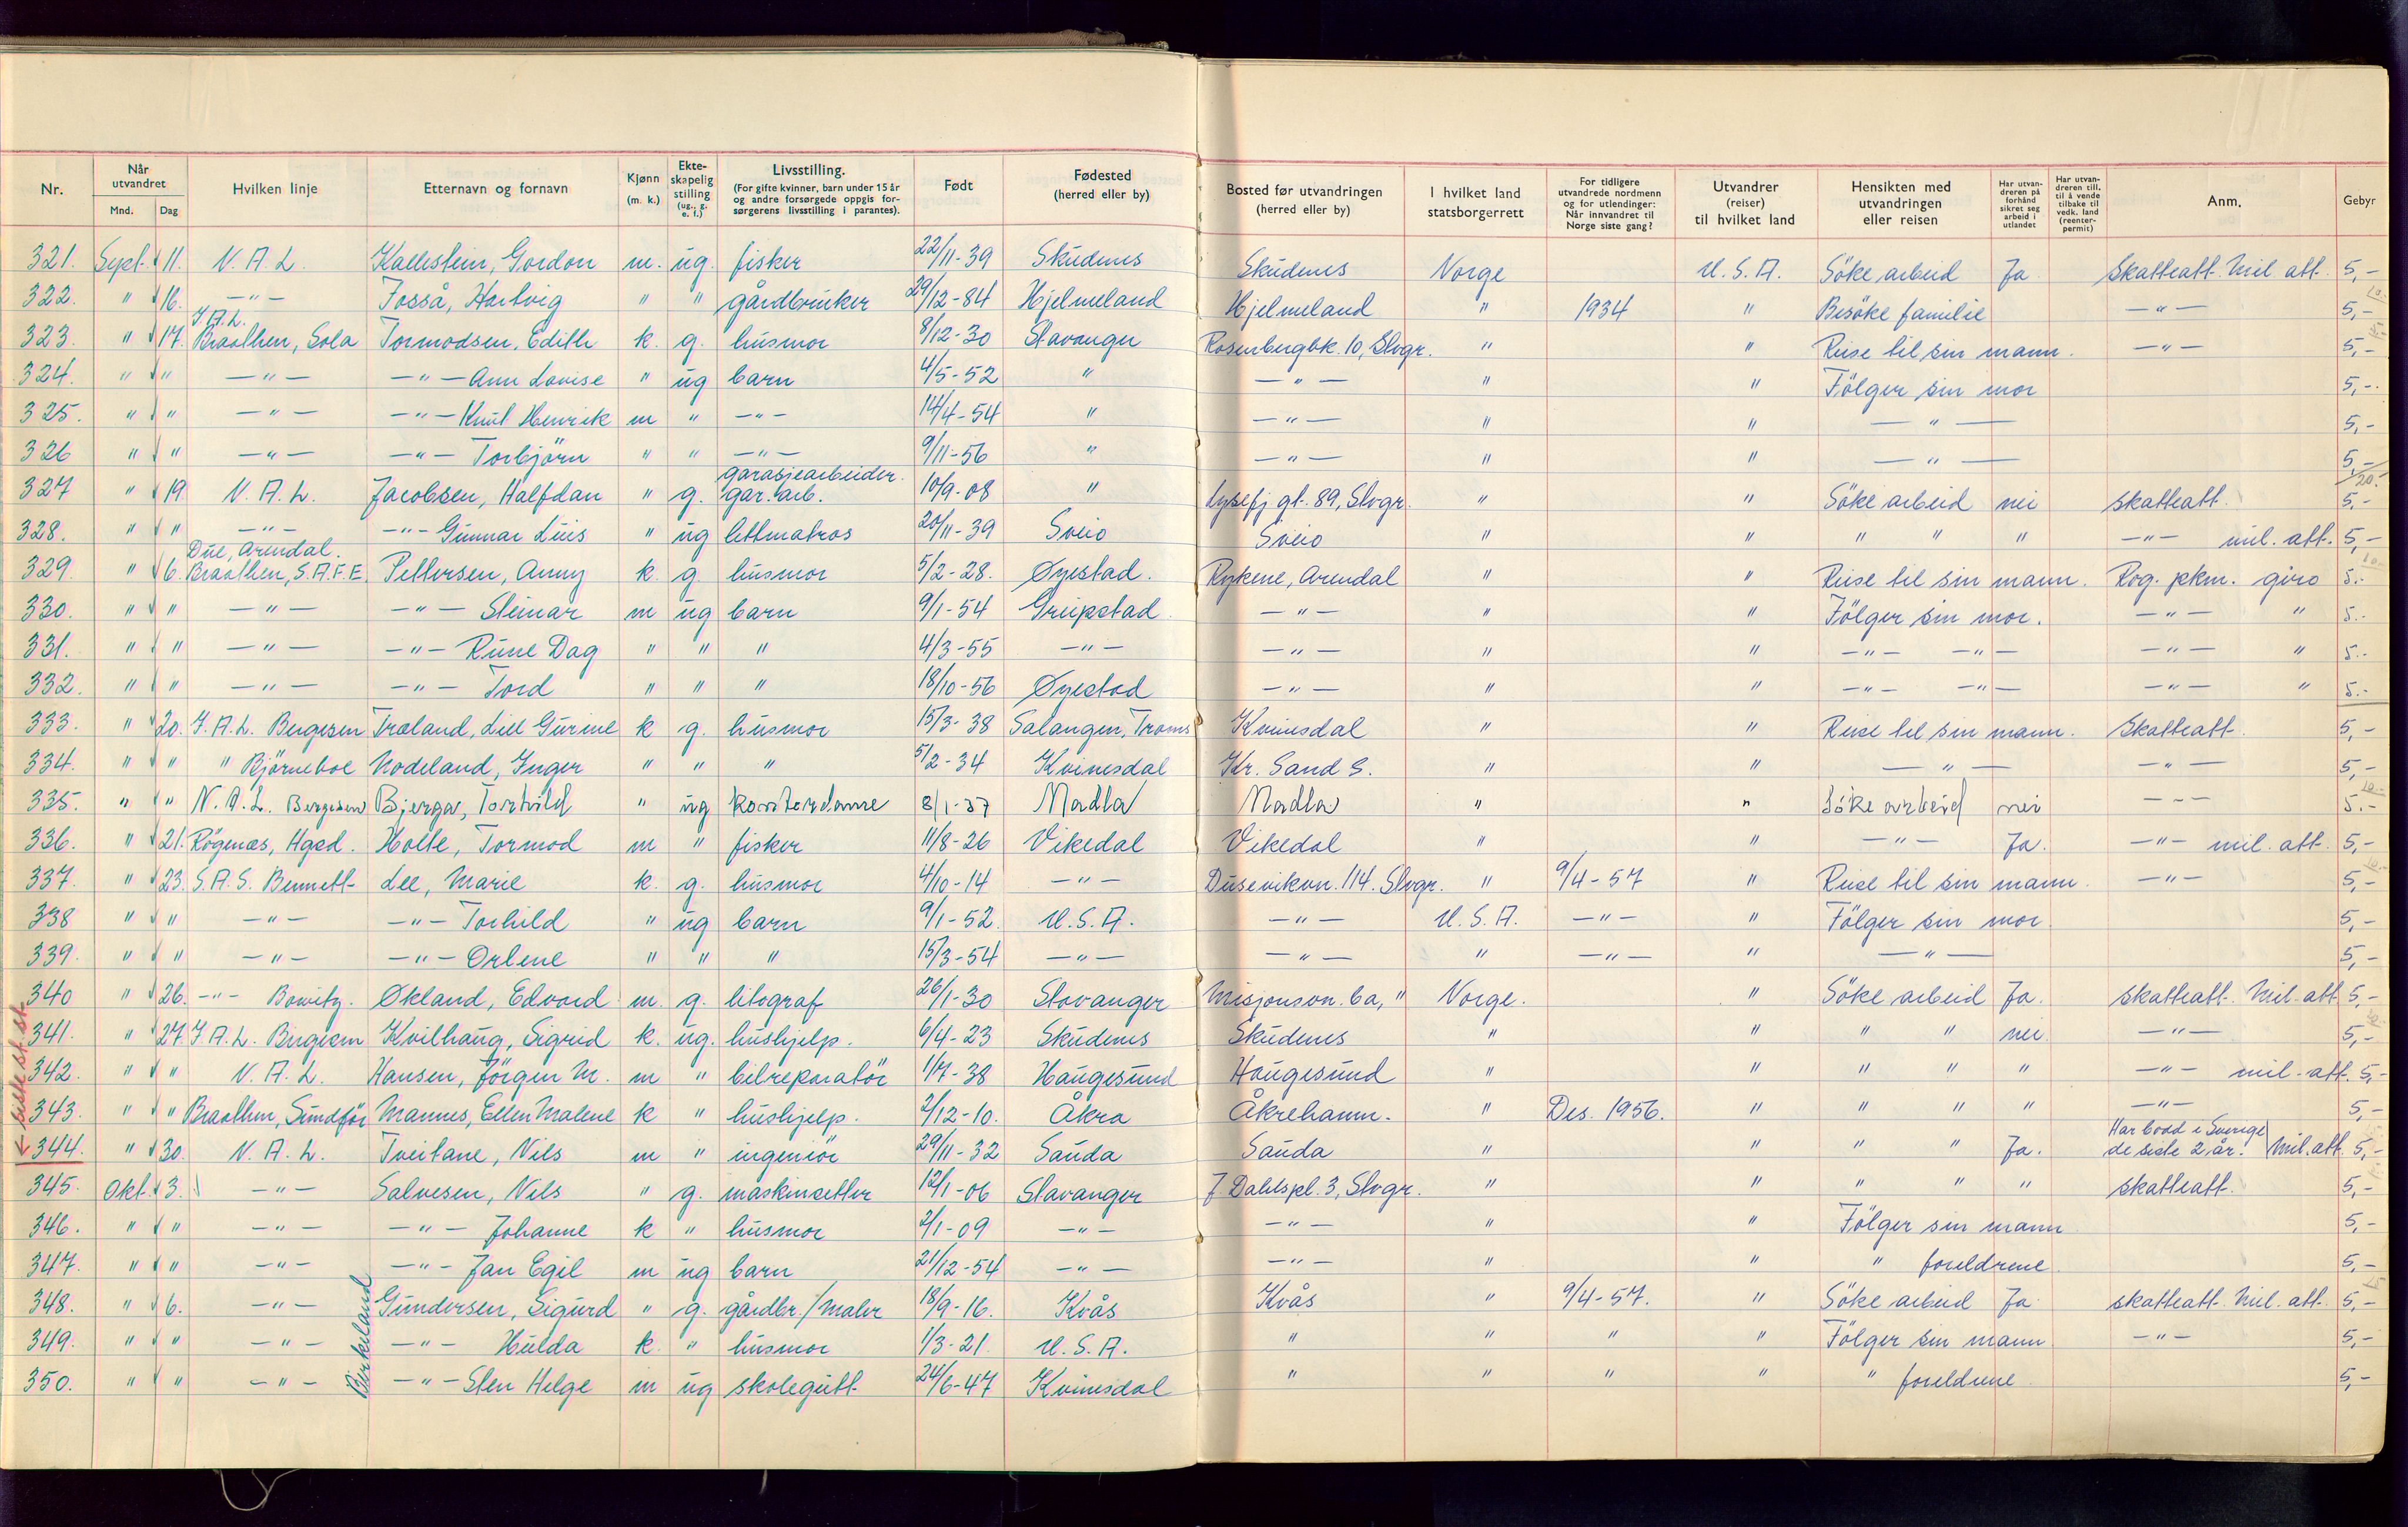 Nr. | Når utvandret Mnd. Dag | Hvilken linje | Etternavn og fornavn | Kjønn (m. k.) | Ekteskapelig stilling (ug., g. e. f.) | Livsstilling. (For gifte kvinner, barn under 15 år og andre forsørgede oppgis forsørgerens livsstilling i parantes). | Født | Fødested (herred eller by) | Bosted før utvandringen (herred eller by) | I hvilket land statsborgerrett | For tidligere utvandrede nordmenn og for utlendinger: Når innvandret til Norge siste gang? | Utvandrer (reiser) til hvilket land | Hensikten med utvandringen eller reisen | Har utvandreren på forhånd sikret seg arbeid i utlandet | Har utvandreren till. til å vende tilbake til vedk. land (reenterpermit) | Anm. | Gebyr
321. Sept. 11. N.A.L. Kallestein, Gordon m. ug. fisker 22/11-39 Skudenes Skudenes Norge U.S.A. Söke arbeid Ja Skatteatt. Mil. att. 5,-
322. " 16. -"- Fosså, Hartvig " " gårdbruker 29/12-84 Hjelmeland Hjelmeland " 1934 " Besöke familie -"- 5,-
323. " 17. F.A.L. Braathen, Sola Tormodsen, Edith k. g. husmor 8/12-30 Stavanger Rosenbergbk. 10, Stvgr. " " Reise til sin mann. -"- 5,-
324. " " -"- -"- Ann Louise " ug barn 4/5-52 " -"- " " Fölger sin mor 5,-
325. " " -"- -"- Knut Henrik m " -"- 14/4-54 " -"- " " -"- 5,-
326 " " -"- -"- Torbjörn " " -"- 9/11-56 " -"- " " -"- 5,-
327 " 19 N.A.L. Jacobsen, Halfdan " g. garasjearbeider. gar. arb. 10/9-08 " Lysefj gt. 89, Stvgr. " " Söke arbeid nei skatteatt. 5,-
328. " " -"- -"- Gunnar Luis " ug lettmatros 20/11-39 Sveio Sveio " " " " " -"- mil. att. 5,-
329. " 6. Due, Arendal. Braathen, S.A.F.E. Pettersen, Anny k. g. husmor 5/2-28. Øyestad. Rykene, Arendal " " Reise til sin mann. Rog. pkm. giro 5.-
330. " " -"- -"- Steinar m ug barn 9/1-54 Greipstad. -"- " " Fölger sin mor. -"- " 5.-
331. " " -"- -"- Rune Dag " " " 4/3-55 -"- -"- " " -"- -"- -"- " 5.-
332. " " -"- -"- Tord " " " 18/10-56 Øyestad -"- " " -"- -"- -"- " 5.-
333. " 20. F.A.L. Bergesen Træland, Lill Gurine k g. husmor 15/3-38 Salangen, Troms Kvinesdal " " Reise til sin mann. Skatteatt. 5,-
334. " " " Björneboe Nodeland, Inger " " " 5/2-34 Kvinesdal Kr. Sand S. " " -"- -"- 5,-
335. " " N.A.L. Bergesen Bjerga, Torhild " ug kontordame 8/1-37 Madla Madla " " Söke arbeid nei -"- 5.-
336. " 21. Rögenæs, Hgsd. Holte, Tormod m " fisker 11/8-26 Vikedal Vikedal " " -"- Ja. -"- mil. att. 5,-
337. " 23. S.A.S. Bennett Lee, Marie k. g. husmor 4/10-14 -"- Dusevikvn. 114. Stvgr. " 9/4-57 " Reise til sin mann. -"- 5,-
338 " " -"- -"- Torhild " ug barn 9/1-52. U.S.A. -"- U.S.A. -"- " Fölger sin mor. 5,-
339. " " -"- -"- Orlene " " " 15/3-54 -"- -"- " -"- " -"- 5,-
340 " 26. -"- Bowitz. Økland, Edvard m. g. litograf 26/1-30 Stavanger Misjonsvn. 6a, " Norge. " Söke arbeid Ja. skatteatt. Mil. att. 5,-
341. " 27. F.A.L. Bergesen Kvilhaug, Sigrid k. ug. hushjelp. 6/4-23 Skudenes Skudenes " " " " nei. -"- 5,-
342. " " N.A.L. Hansen, Jörgen M. m " bilreparatör 1/7-38 Haugesund Haugesund " " " " " -"- mil. att. 5,-
343. " " Braathen, Sundför Mannes, Ellen Malene k " hushjelp. 2/12-10. Åkra Åkrehamn. " Des. 1956. " " " " -"- 5,-
344. " 30. N.A.L. Tveitane, Nils m " ingeniör 29/11-32 Sauda Sauda " " " " Ja. Har bodd i Sverige de siste 2 år. Mil. att. 5,-
345. Okt. 3. -"- Salvesen, Nils " g. maskinsetter 12/1-06 Stavanger J. Dahlspl. 3, Stvgr. " " " " " skatteatt. 5,-
346. " " -"- -"- Johanne k " husmor 2/1-09 -"- -"- " " Fölger sin mann 5,-
347. " " -"- -"- Jan Egil m ug barn 21/12-54 -"- -"- " " " foreldrene. 5,-
348. " 6. -"- Birkeland Gundersen, Sigurd " g. gårdbr./maler 18/9-16. Kvås Kvås " 9/4-57. " Söke arbeid Ja skatteatt. Mil. att. 5,-
349. " " -"- -"- Hulda k. " husmor 1/3-21. U.S.A. " " " " Fölger sin mann -"- 5,-
350. " " -"- -"- Sten Helge m ug skolegutt 24/6-47 Kvinesdal " " " " " foreldrene 5,-